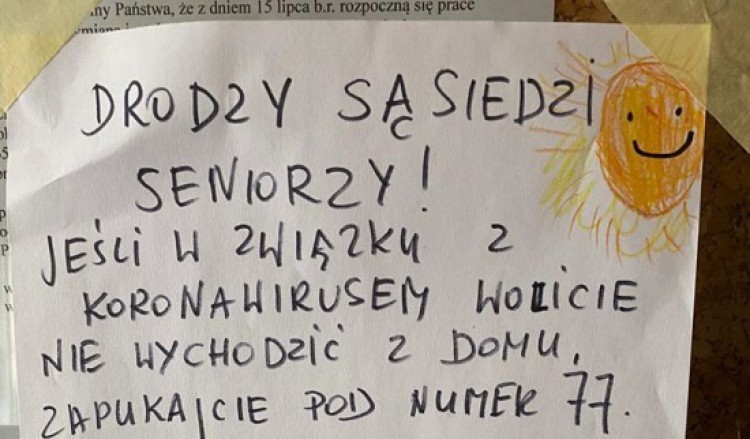 ny Państwa, że z dniem 15 lipca b.r. rozpoczną się prace
DRODZY SĄSIEDZI
SENIORZY!
JEŚLI W ZWIĄZKU Z
KORONAWIRUSEM WOLICIE
NIE WYCHODZIĆ Z DOMU,
ZAPUKAJCIE POD NUMER 77.